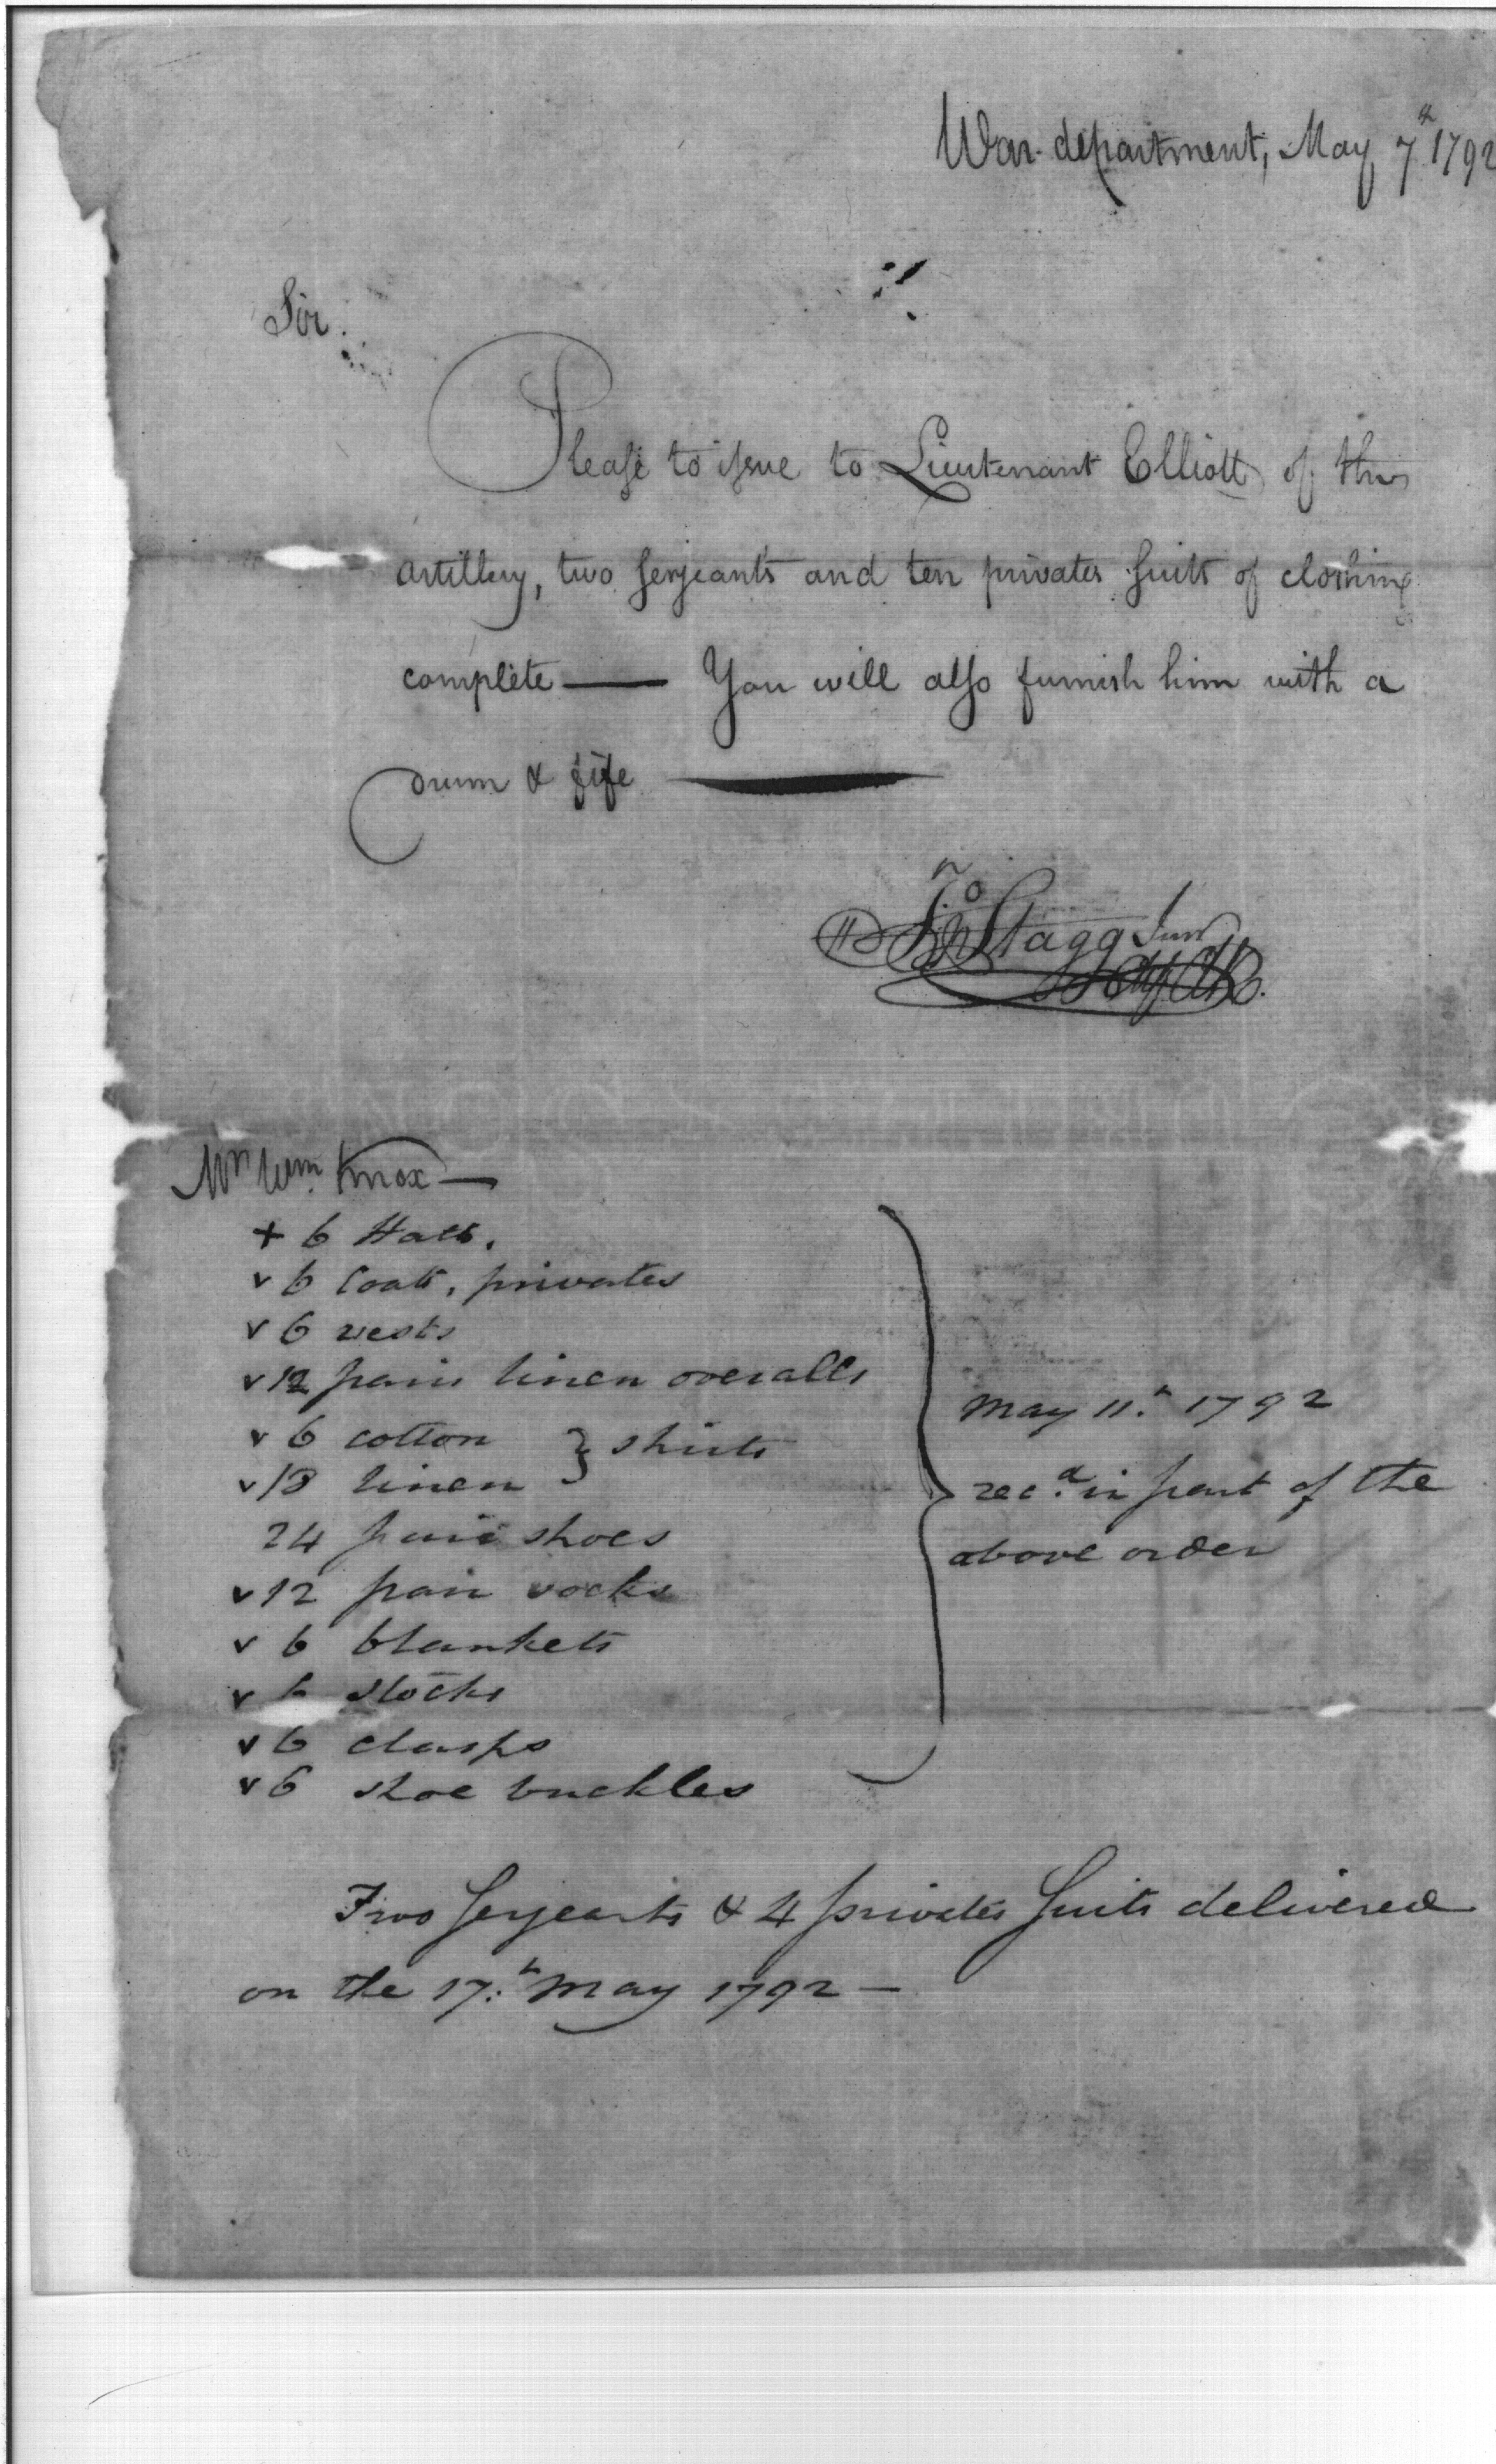 War department, May 7th 1792
Sir.
Please to issue to Lieutenant Elliott of the
artillery, two serjeants and ten privates suits of clothing
complete — You will also furnish him with a
drum & fife —
Jno Stagg Junr
Mr Wm. Knox —
+ 6 Hats.
v 6 Coats, privates
v 6 vests
v 12 pairs linen overalls
v 6 cotton } shirts
v 18 linen
24 pair shoes
v 12 pair socks
v 6 blankets
v 6 stocks
v 6 clasps
v 6 shoe buckles
May 11.th 1792
rec.d in part of the
above order
Two serjeants & 4 privates suits delivered
on the 17.th May 1792 —